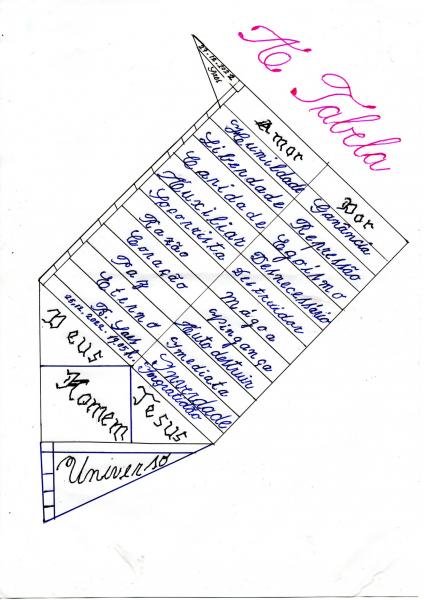 A Tabela
Amor
Dor
Humildade
Ganância
Liberdade
Repressão
Caridade
Egoísmo
Auxiliar
Desnecessário
Socorrista
Destruidor
Razão
Mágoa
Coração
Vingança
Paz
Auto destruir
Eterno
Imediata
Inverdade
Ingratidão
Deus
Homem
Jesus
Universo